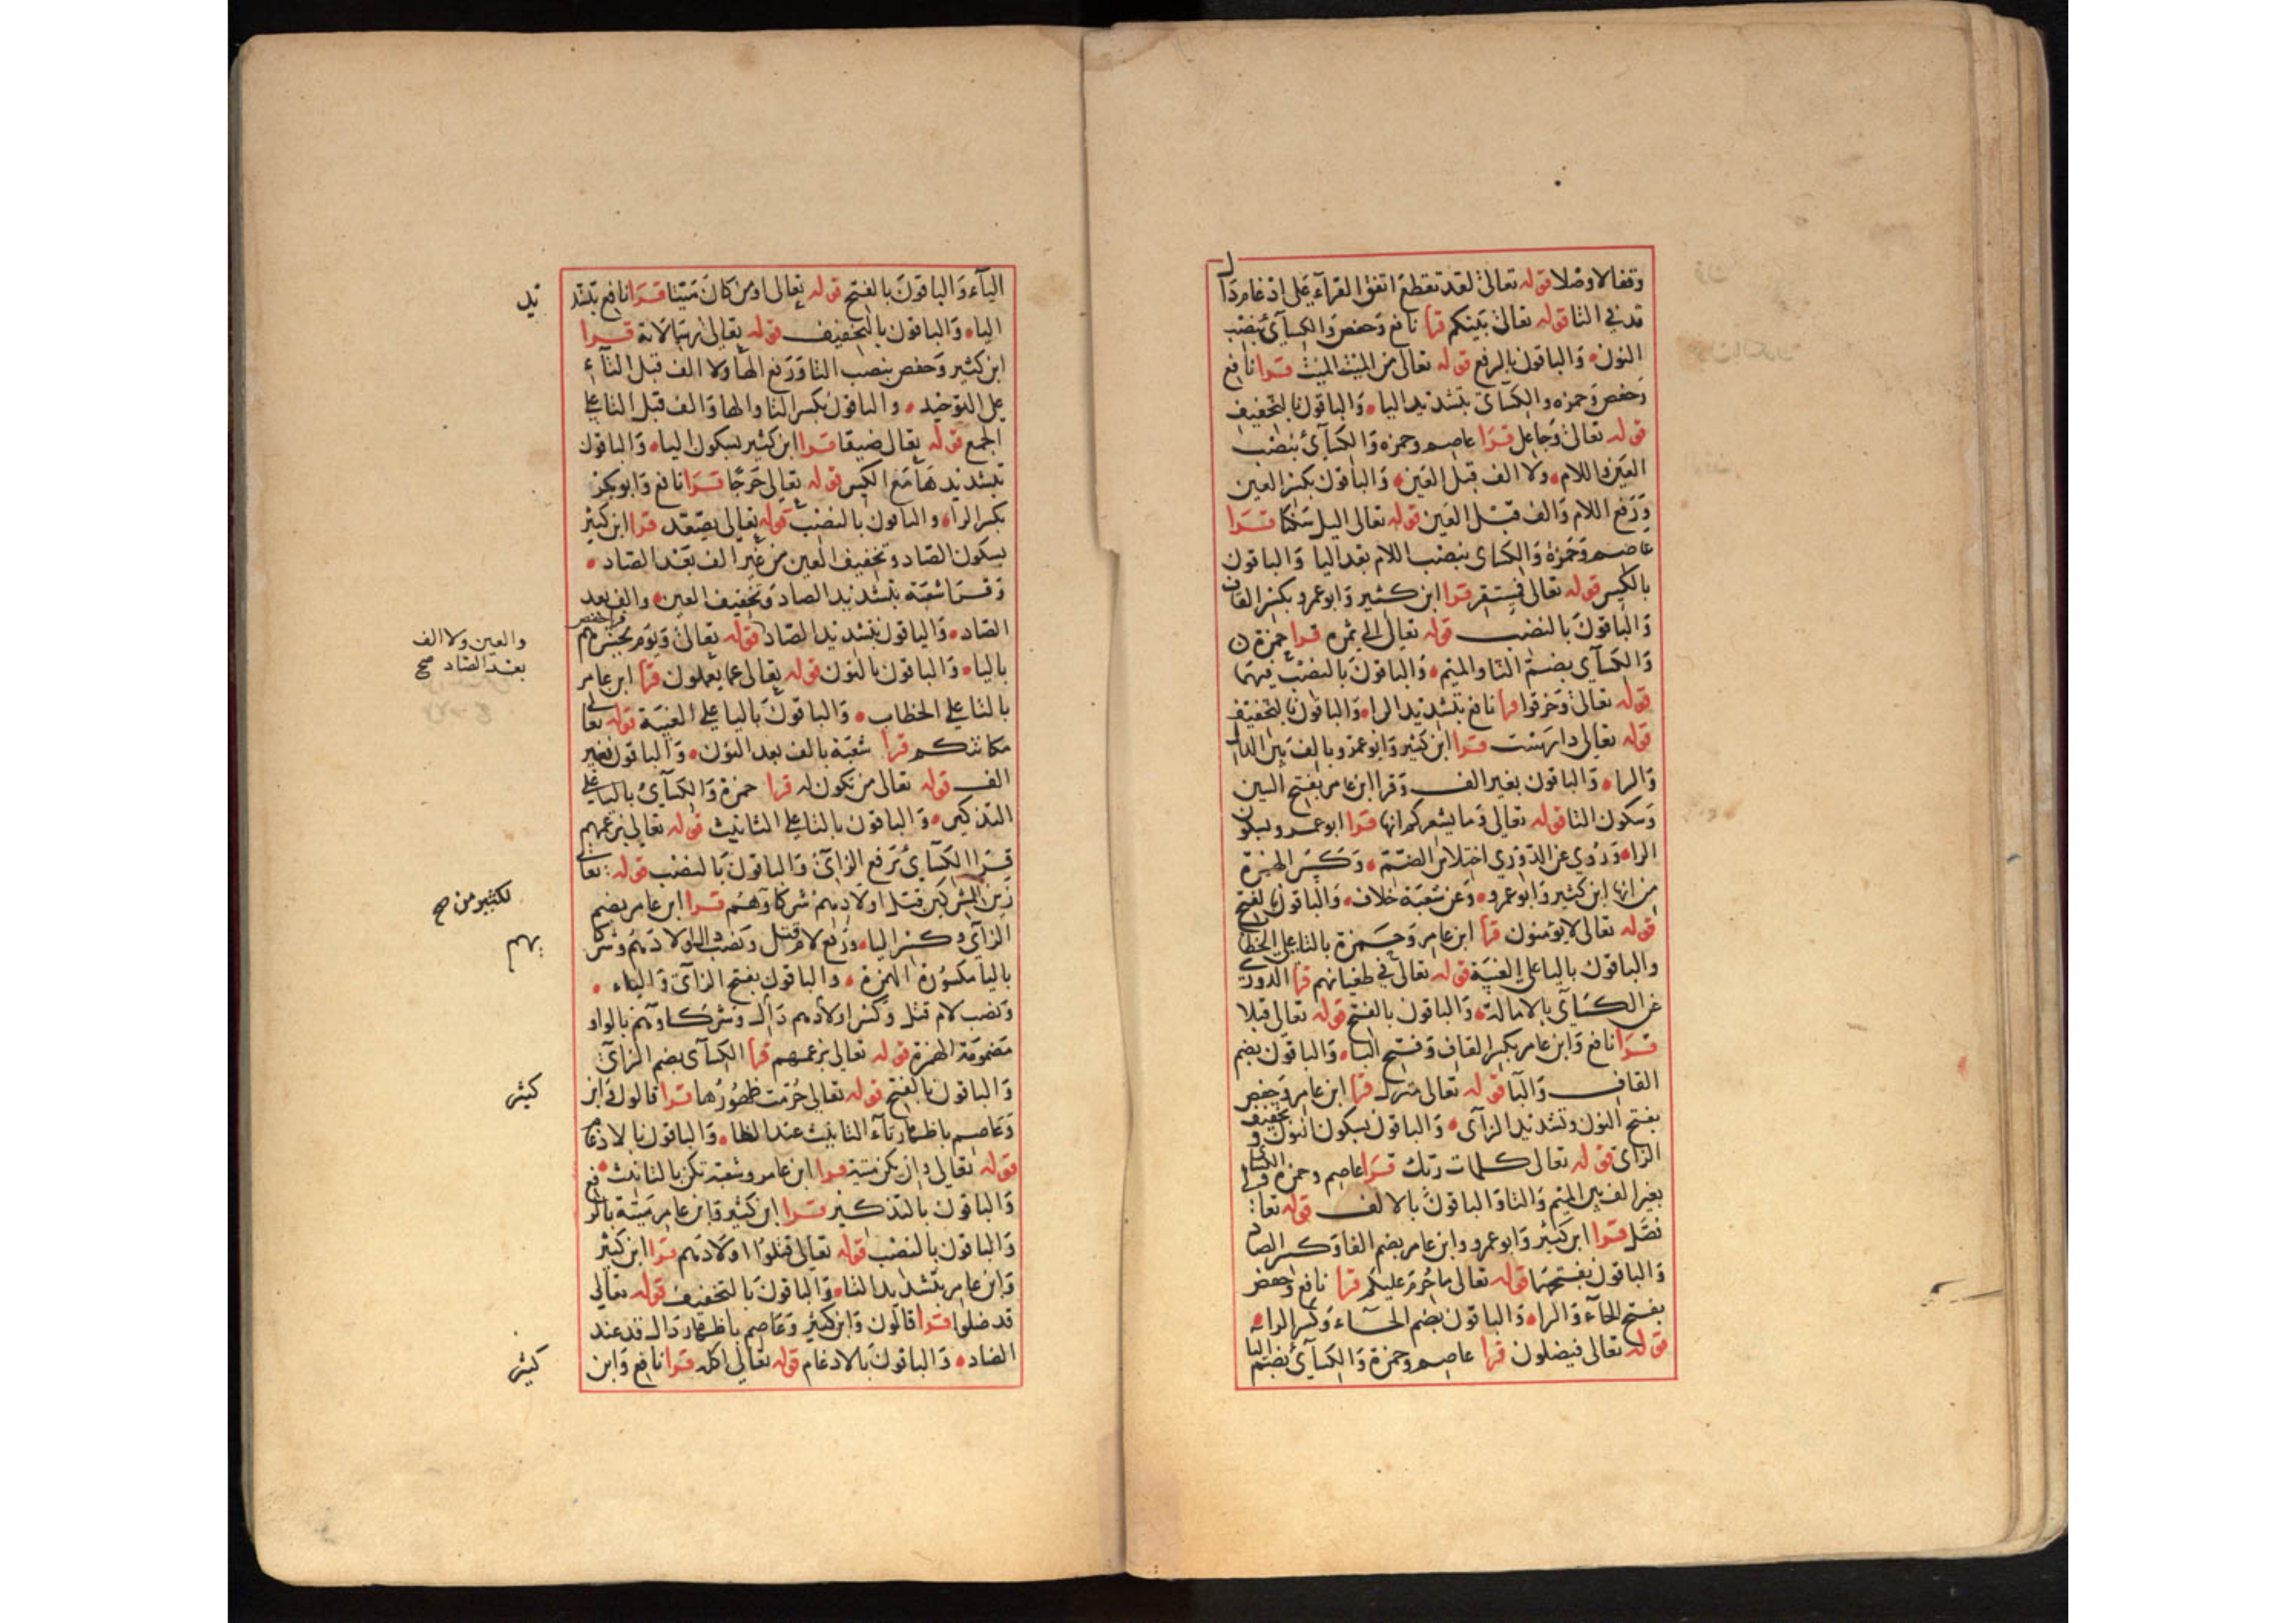 وقفا لا وصلا قوله تعالى لقد تقطع اتفق القرآء على ادغام دال
قد في التا قوله تعالى بينكم قرا نافع وحفص والكسآئ بنصب
النون والباقون بالرفع قوله تعالى من الميت الميت قرا نافع
وحفص وحمزه والكسآئ بتشديد الياء والباقون بالتخفيف
قوله تعالى وجاعل قرا عاصم وحمزه والكسآئ بنصب
العين واللام ولا الف قبل العين والباقون بكسر العين
ورفع اللام والف قبل العين قوله تعالى اليل سكنا قرا
عاصم وحمزة والكساى بنصب اللام بعد اليا والباقون
بالكسر قوله تعالى فمستقر قرا ابن كثير وابو عمرو بكسر القاف
والباقون بالنصب قوله تعالى الى ثمره قرا حمزة
والكسآي بضم الثا والميم والباقون بالنصب فيهما
قوله تعالى وخرقوا قرا نافع بتشديد الراء والباقون بالتخفيف
قوله تعالى دارست قرا ابن كثير وابو عمرو بالف بين الدال
والراء والباقون بغير الف وقرا ابن عامر بفتح السين
وسكون التا قوله تعالى وما يشعركم انها قرا ابو عمرو بسكون
الراء وروي عن الدوري اختلاس الضمة وكسر الهمزة
من انها ابن كثير وابو عمرو وعن شعبة خلاف والباقون بالفتح
قوله تعالى لا يؤمنون قرا ابن عامر وحمزة بالتا على الخطاب
والباقون باليا على الغيبة قوله تعالى في طغيانهم قرا الدوري
عن الكسآي بالامالة والباقون بالفتح قوله تعالى قبلا
قرا نافع وابن عامر بكسر القاف وفتح الباء والباقون بضم
القاف والبا قوله تعالى منزل قرا ابن عامر وحفص
بفتح النون وتشديد الزآى والباقون بسكون النون وتخفيف
الزاى قوله تعالى كلمات ربك قرا عاصم وحمزه والكسائي
بغير الف بين الميم والتا والباقون بالالف قوله تعا
فصل قرا ابن كثير وابو عمرو وابن عامر بضم الفا وكسر الصاد
والباقون بفتحهما قوله تعالى ما حرم عليكم قرا نافع وحفص
بفتح الحآء والراء والباقون بضم الحآء وكسر الراء
قوله تعالى فيضلون قرا عاصم وحمزة والكسآئ بضم اليا
اليآء والباقون بالفتح قوله تعالى اومن كان ميتا قرا نافع بتشد
يد
الياء والباقون بالتخفيف قوله تعالى رسالاته قرا
ابن كثير وحفص بنصب التا ورفع الها ولا الف قبل التآء
على التوحيد والباقون بكسر التا والها والف قبل التا على
الجمع قوله تعالى ضيقا قرا ابن كثير بسكون الياء والباقون
بتشديدها مع الكسر قوله تعالى حرجا قرا نافع وابو بكر
بكسر الراء والباقون بالنصب قوله تعالى يصعد قرا ابن كثير
بسكون الصاد وتخفيف العين من غير الف بعد الصاد
وقرا شعبة بتشديد الصاد وتخفيف العين والف بعد
الصاد والباقون بتشديد الصاد قوله تعالى ويوم يحشرهم قرا حفص
والعين ولا الف
بعد الصاد صح
بالياء والباقون بالنون قوله تعالى عما يعملون قرا ابن عامر
بالتا على الخطاب والباقون باليا على الغيبة قوله تعالى
مكانتكم قرا شعبة بالف بعد النون والباقون بغير
الف قوله تعالى من تكون له قرا حمزة والكسآئ باليا على
التذكير والباقون بالتا على التانيث قوله تعالى بزعمهم
قرا الكسآئ برفع الزآى والباقون بالنصب قوله تعالى
زين المشركين قتل اولادهم شركاؤهم قرا ابن عامر بضم
لكثير من صح
الزآى وكسر الياء ورفع لام قتل ونصب دال اولادهم وشركا
يهم
باليا مكسورة الهمزة والباقون بفتح الزآى والياء
ونصب لام قتل وكسر اولادهم دال وشركاوهم بالواو
مضمومة الهمزة قوله تعالى بزعمهم قرا الكسآى بضم الزآى
والباقون بالفتح قوله تعالى حرمت ظهورها قرا قالون وابن
كثير
وعاصم باظهار تآء التانيث عند الظاء والباقون بالادغام
قوله تعالى وان يكن ميتة قرا ابن عامر وشعبة تكن بالتانيث
والباقون بالتذكير قرا ابن كثير وابن عامر ميتة بالرفع
والباقون بالنصب قوله تعالى قتلوا اولادهم قرا ابن كثير
وابن عامر بتشديد التاء والباقون بالتخفيف قوله تعالى
قد ضلوا قرا قالون وابن كثير وعاصم باظهار دال قد عند
الضاد والباقون بالادغام قوله تعالى اكله قرا نافع وابن
كثير